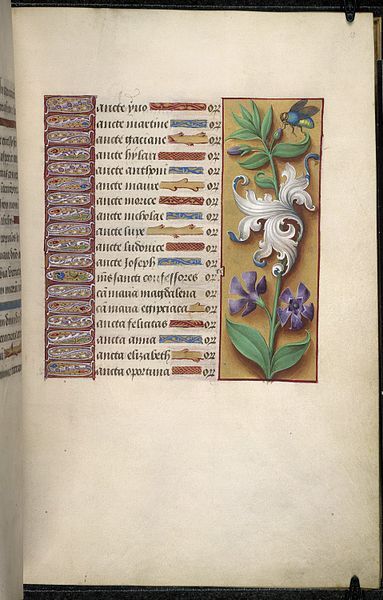 ancte yuo or
ancte martine or
ancte gaciane or
ancte hylari or
ancte anthoni or
ancte maure or
ancte morce or
ancte nicholae or
ancte luxe or
ancte ludouice or
ancte ioseph or
nis sancta confessores or
ca maria magdalena or
ca maria egipciaca or
ancta felicitas or
ancta anna or
ancta elizabeth or
ancta oportuna or